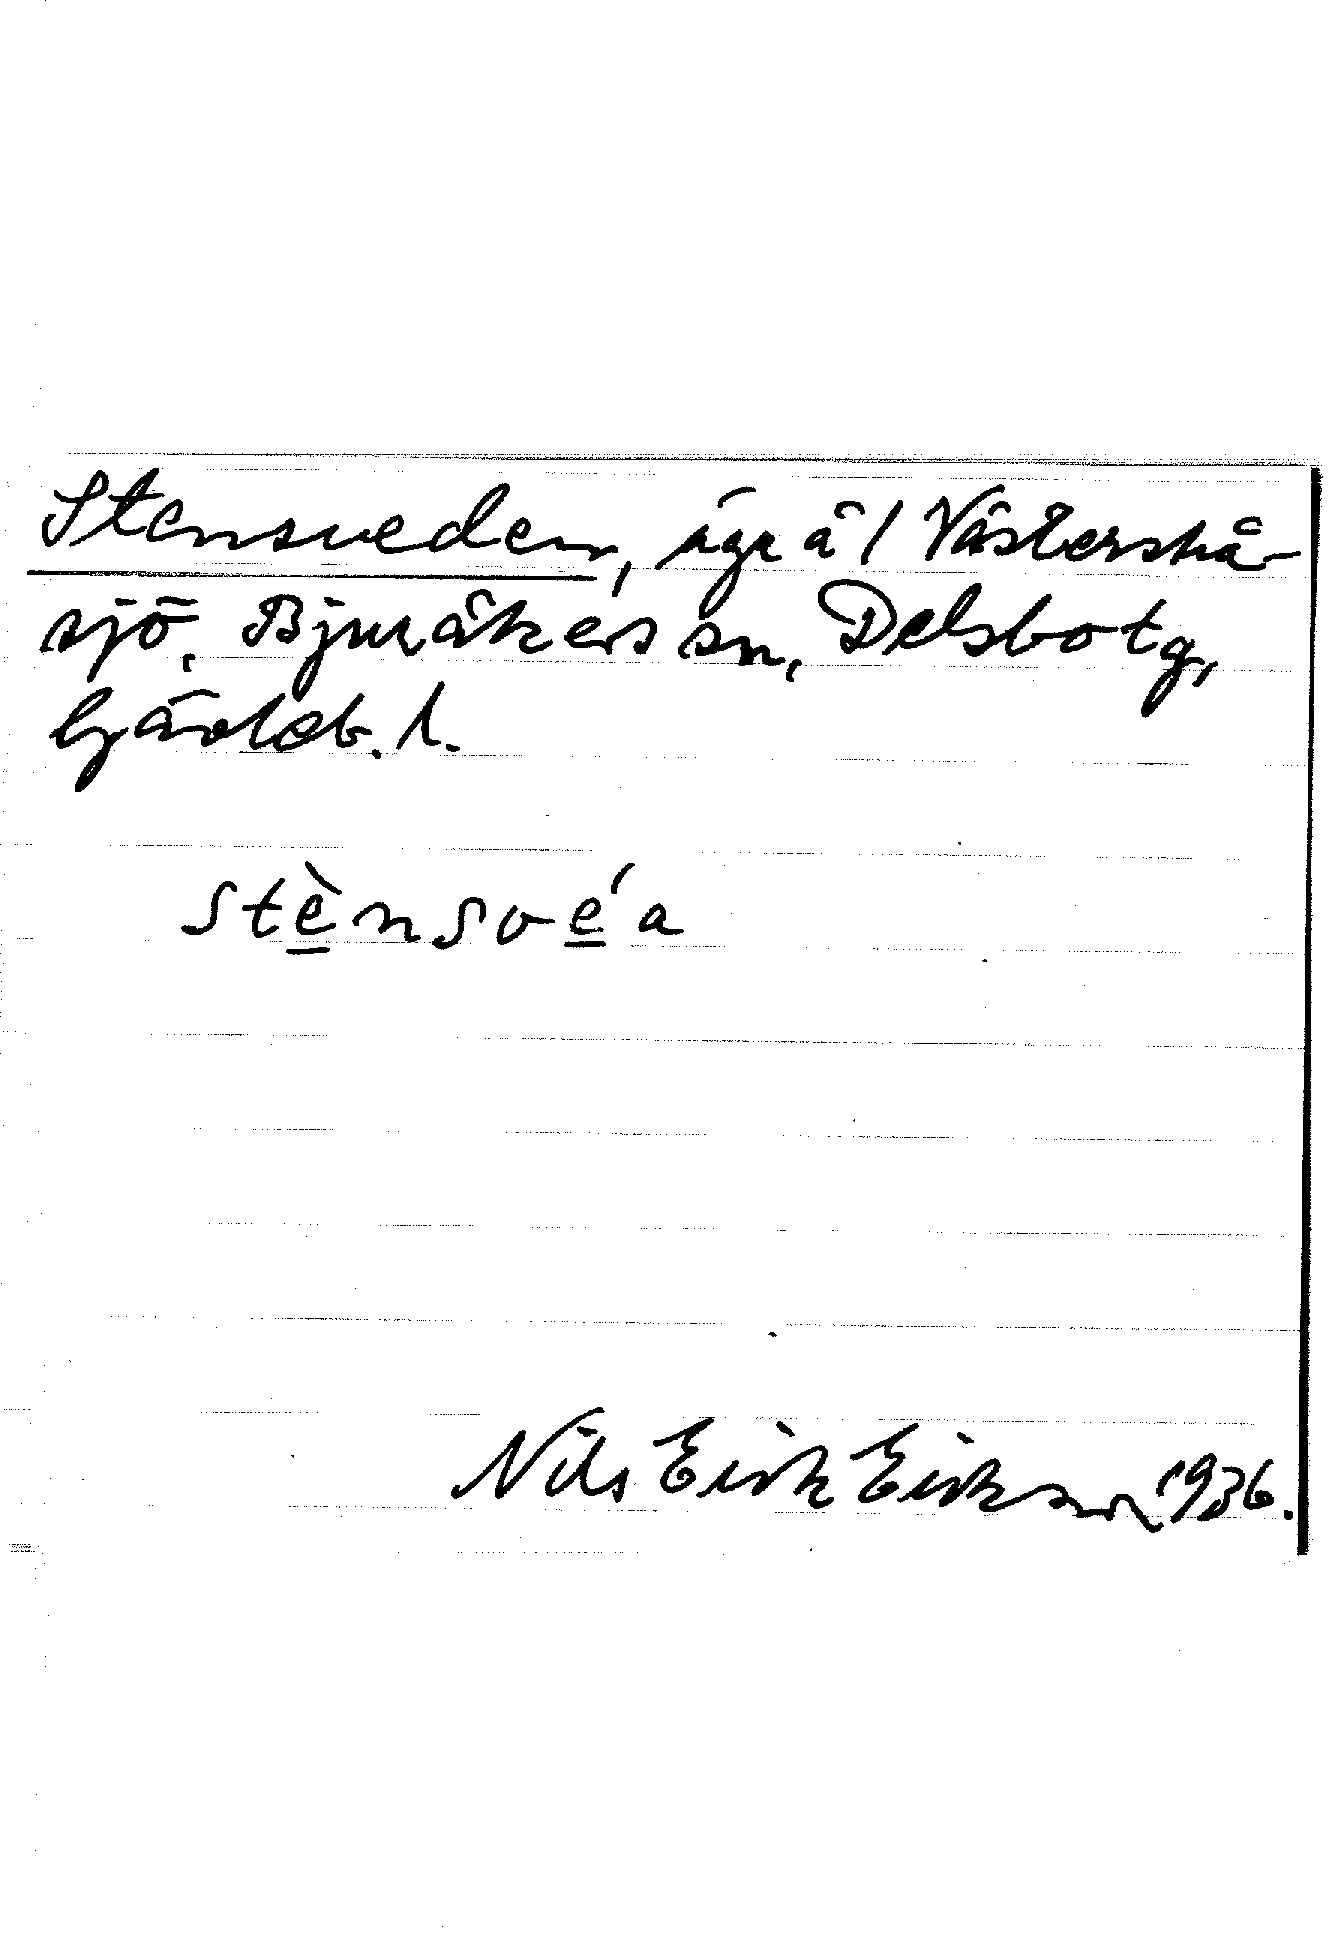 Stensveden, ägr å / Västerskå-
sjö, Bjuråkers sn, Delsbo tg,
Gävleb. l.
stènsvéa
Nils Erik Eriksson 1936.